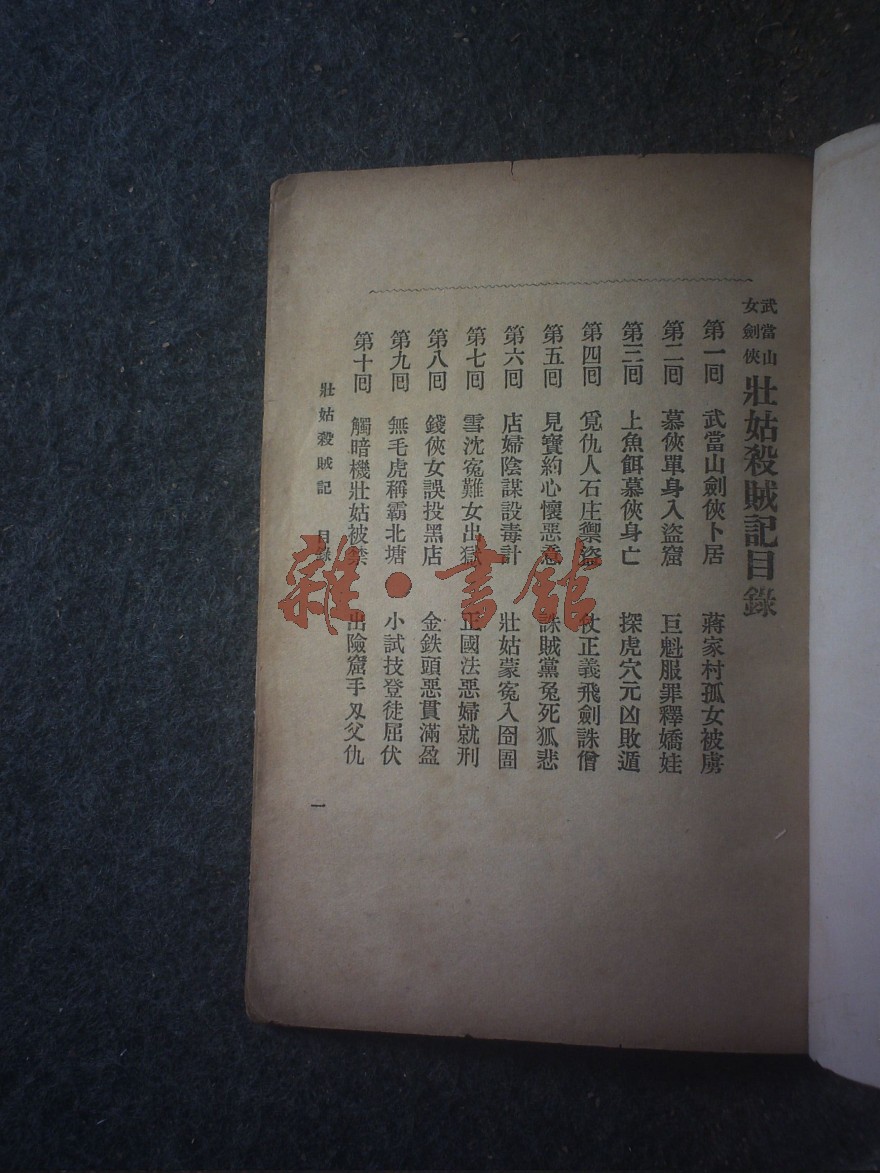 武當山女劍俠 壯姑殺賊記目錄
第一回 武當山劍俠卜居 蔣家村孤女被虜
第二回 慕俠單身入盜窟 巨魁服罪釋嬌娃
第三回 上魚餌慕俠身亡 探虎穴元凶敗遁
第四回 覓仇人石庄禦盜 仗正義飛劍誅僧
第五回 見寶約心懷惡意 誅賊黨兔死狐悲
第六回 店婦陰謀設毒計 壯姑蒙寃入囹圄
第七回 雪沈寃難女出獄 正國法惡婦就刑
第八回 錢俠女誤投黑店 金鉄頭惡貫滿盈
第九回 無毛虎稱霸北塘 小試技登徒屈伏
第十回 觸暗機壯姑被禁 出險窟手刄父仇
壯姑殺賊記 目錄 一
雜·書館